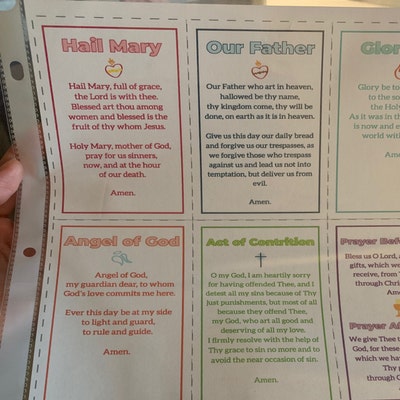 Hail Mary
Hail Mary, full of grace,
the Lord is with thee.
Blessed art thou among
women and blessed is the
fruit of thy whom Jesus.
Holy Mary, mother of God,
pray for us sinners,
now, and at the hour
of our death.
Amen.
Our Father
Our Father who art in heaven,
hallowed be thy name,
thy kingdom come, thy will be
done, on earth as it is in heaven.
Give us this day our daily bread
and forgive us our trespasses, as
we forgive those who trespass
against us and lead us not into
temptation, but deliver us from
evil.
Amen.
Glor
Glory be to
to the so
the Holy
As it was in th
is now and e
world with
A
Angel of God
Angel of God,
my guardian dear, to whom
God's love commits me here.
Ever this day be at my side
to light and guard,
to rule and guide.
Amen.
Act of Contrition
O my God, I am heartily sorry
for having offended Thee, and I
detest all my sins because of Thy
Just punishments, but most of all
because they offend Thee,
my God, who art all good and
deserving of all my love.
I firmly resolve with the help of
Thy grace to sin no more and to
avoid the near occasion of sin.
Amen.
Prayer Befo
Bless us O Lord, a
gifts, which we
receive, from
through Chri
Ame
Prayer A
We give Thee t
God, for these
which we ha
Thy
through